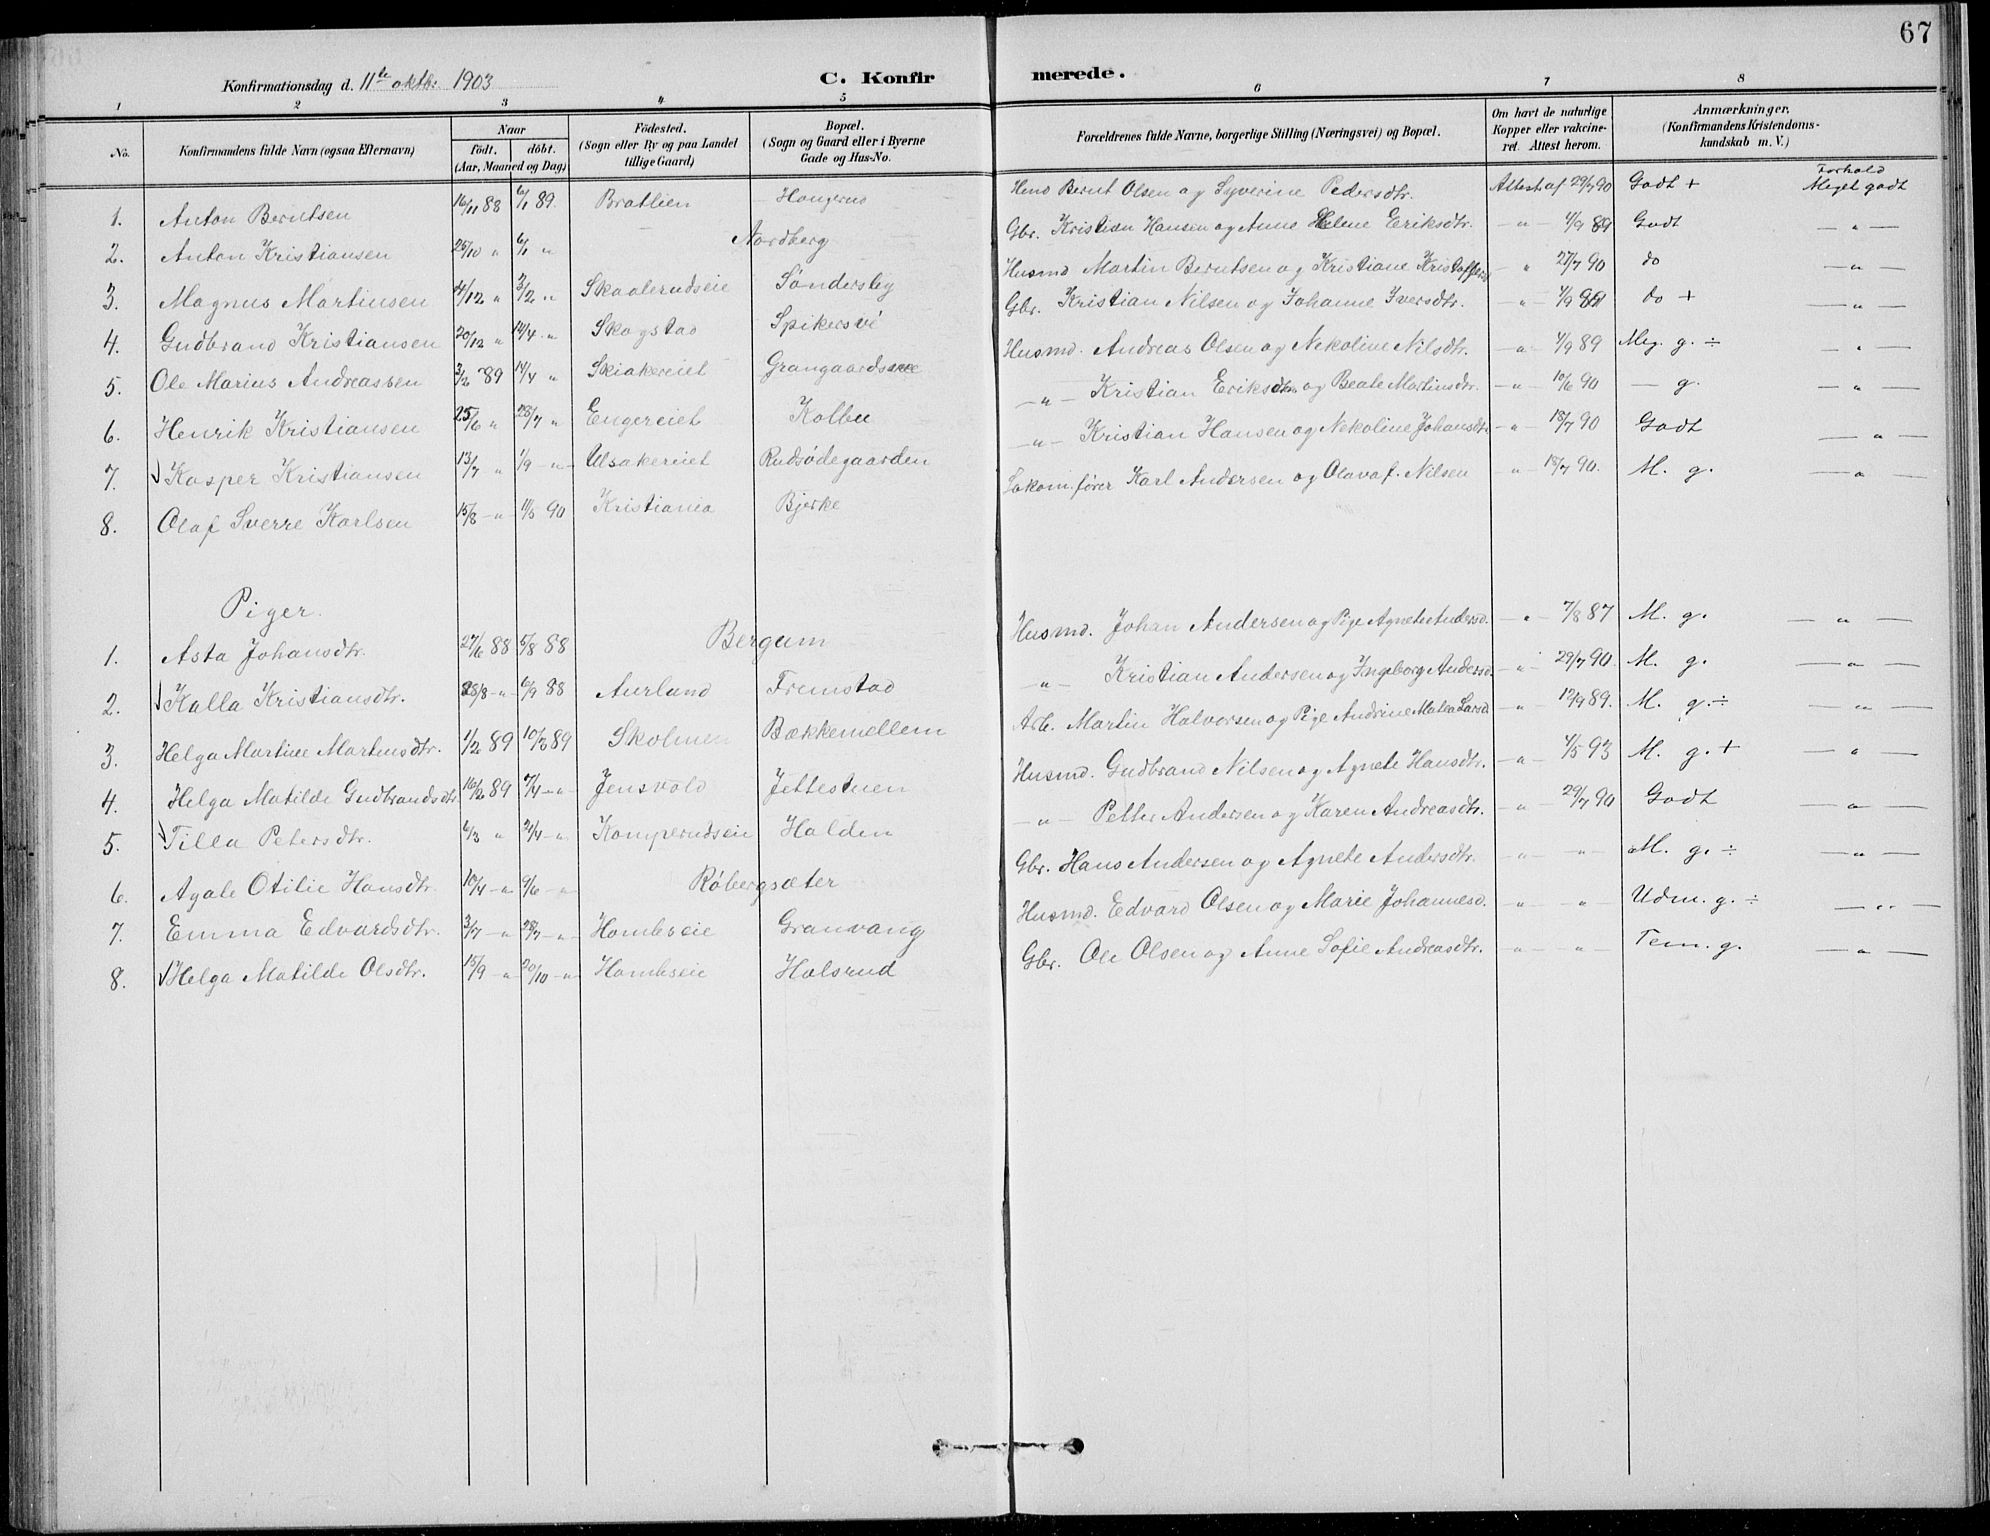 67
Konfirmationsdag d. 11te oktb: 1903
C. Konfirmerede.
1 2 3 4 5 6 7 8
No.
Konfirmandens fulde Navn (ogsaa Efternavn)
Naar
födt. döbt.
(Aar, Maaned og Dag)
Födested.
(Sogn eller By og paa Landet
tillige Gaard)
Bopæl.
(Sogn og Gaard eller i Byerne
Gade og Hus-No.
Forældrenes fulde Navne, borgerlige Stilling (Næringsvei) og Bopæl.
Om havt de naturlige
Kopper eller vakcine-
ret. Attest herom.
Anmærkninger.
(Konfirmandens Kristendoms-
kundskab m. V.)
Forhold
1. Anton Berntsen 16/11 88 6/1 89. Bratlien Haugerud Bernt Olsen og Syverine Pedersdtr. Attest af 29/7 90 Godt + Meget godt
2. Anton Kristiansen 25/10 " 6/1 " Nordberg Gbr. Kristian Hansen og Anne Helene Eriksdtr. — " — 4/9 89 Godt — " —
3. Magnus Martinsen 4/12 " 3/2 " Skaalerudseie Söndersby Husmd Martin Berntsen og Kristiane — " 27/7 90 do — " —
4. Gudbrand Kristiansen 20/12 " 14/4 " Skogstad Gbr. Kristian Nilsen og Johanne Iversdtr. — " 4/9 89 do + — " —
5. Ole Marius Andreassen 3/2 89 14/4 " Skiakereiet Husmd. Andreas Olsen og Nekoline Nilsdtr. — " — 4/9 89 Meg. g. ÷ — " —
6. Henrik Kristiansen 25/6 " 28/7 " Engereiet Kolbu — " — Kristian og Beate Martinsdtr. — " — 10/6 90 — g. — " —
7. Kasper Kristiansen 13/7 " 1/9 — " — Ulsakereiet Rudsödegaarden — " — Kristian Hansen og Nekoline Johansdtr — " — 18/7 90 Godt — " —
8. Olaf Sverre Karlsen 15/8 — " 11/5 90 Kristiania Bjerke Lokom.förer Karl Andersen og Olava f. Nilsen — " — 18/7 90. M. g. — " —
Piger.
1. Asta Johansdtr. 27/6 88 5/8 88 Bergum Husmd. Johan Andersen og Pige Agnete Andersd. — " — 7/8 87 M. g. — " —
2. Kalla Kristiansdtr. 28/8 — " 6/9 88 Aurlund Fremstad — " — Kristian Andersen og Ingeborg Andersd. — " — 29/7 90. M. g. — " —
3. Helga Martine Martinsdtr. 1/2 89 10/3 89 Skolmen Bækkemellem Arb. Martin Halvorsen og Pige Andrine Matea Larsd. — " 12/9 89. M. g. ÷ — " —
4. Helga Matilde Gudbrandsdtr 16/2 89 7/4 — " Jensvold Jettestuen Husmd. Gudbrand Nilsen og Agnete Hansdtr. — " — 4/5 93 M. g. + — " —
5. Tilla Petersdtr. 6/3 " 21/4 — " Komperudseie Halden — " — Petter Andersen og Karen Andreasdtr. " 29/7 90 Godt — " —
6. Agate Otilie Hansdtr. 10/4 — " 9/6 — " Röbergsæter Gbr. Hans Andersen og Agnete Andersdtr. " — " — M. g. ÷ — " —
7. Emma Edvardsdtr. 3/7 — " 28/7 — " Hombseie Granvang Husmd. Edvard Olsen og Marie Johannesd. " " Udm. g. ÷ — " —
8. Helga Matilde Olsdtr. 15/9 — " 20/10 — " Hombseie Halsrud Gbr. Ole Olsen og Anne Sofie Andreasdtr. " — " — Tem. g. — " —